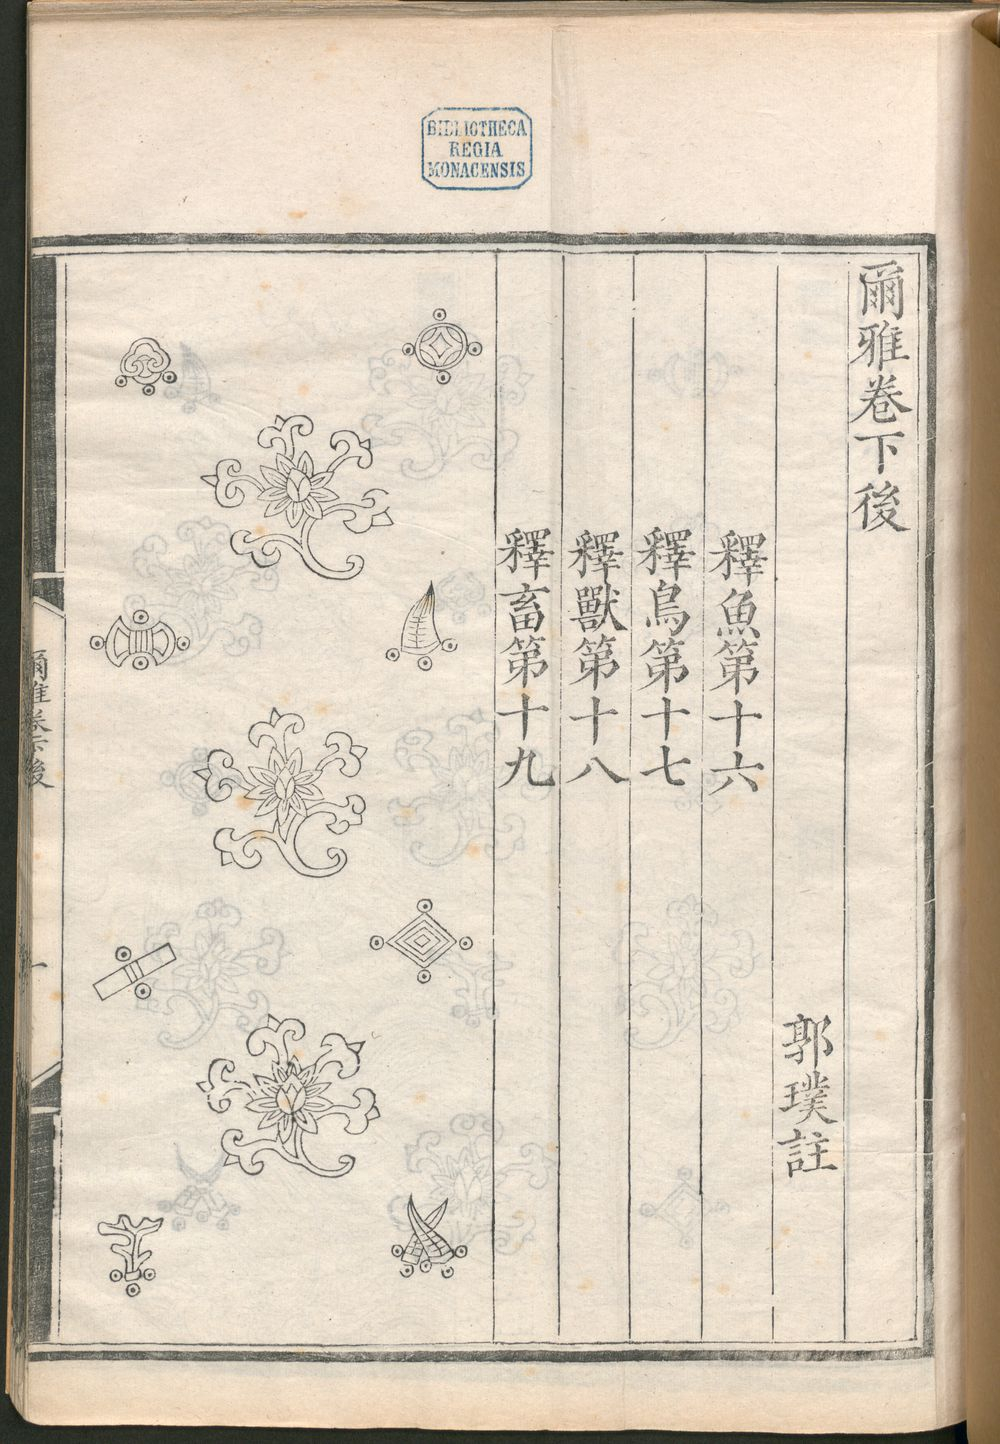 BIBLIOTHECA
REGIA
MONACENSIS
爾雅卷下後
郭璞註
釋魚第十六
釋鳥第十七
釋獸第十八
釋畜第十九
爾雅卷下後
一